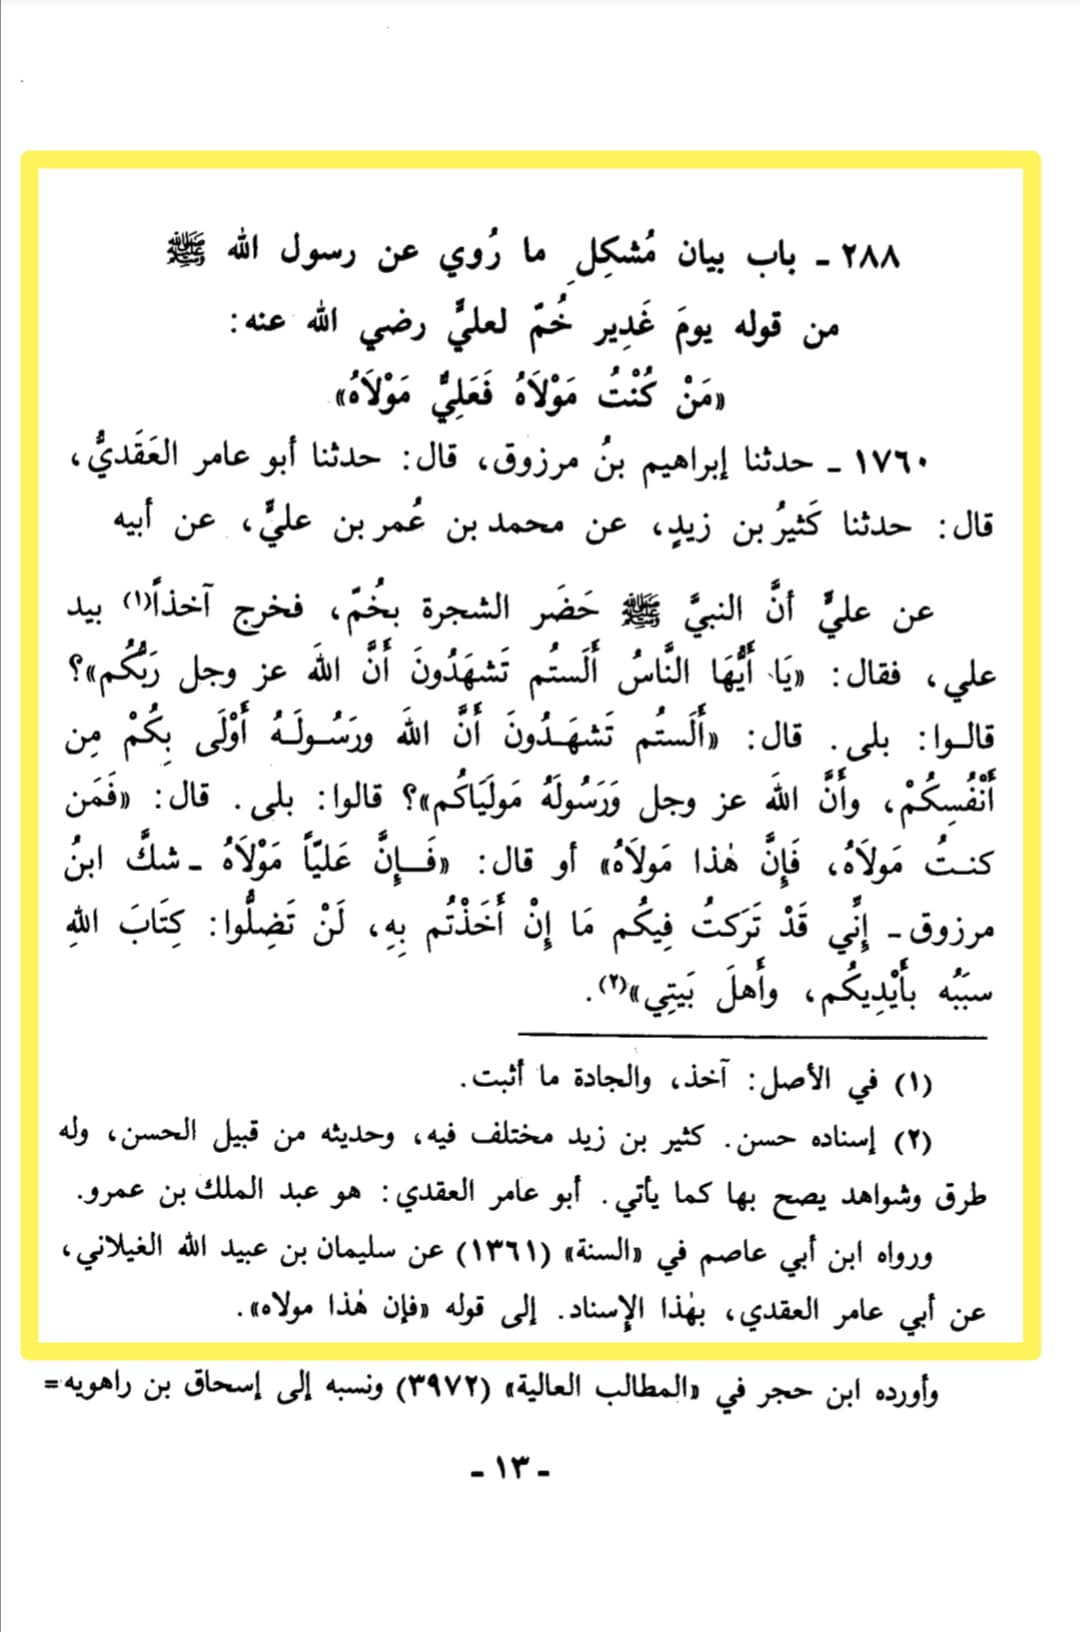 ٢٨٨ - باب بيان مُشكِلِ ما رُوي عن رسول الله ﷺ
من قوله يومَ غَدِير خُمّ لعليٍّ رضي الله عنه:
«مَنْ كُنْتُ مَوْلَاهُ فَعَلِيٌّ مَوْلَاهُ»
١٧٦٠ - حدثنا إبراهيم بنُ مرزوق، قال: حدثنا أبو عامر العَقَديُّ،
قال: حدثنا كَثيرُ بن زيدٍ، عن محمد بن عُمر بن عليٍّ، عن أبيه
عن عليٍّ أنَّ النبيَّ ﷺ حَضَر الشجرة بخُمّ، فخرج آخذاً(١) بيد
علي، فقال: «يَا أَيُّهَا النَّاسُ أَلَستُم تَشهَدُونَ أَنَّ اللهَ عز وجل رَبُّكُم»؟
قالوا: بلى. قال: «أَلَستُم تَشهَدُونَ أَنَّ اللهَ ورَسُولَهُ أَوْلَى بِكُمْ مِن
أَنْفُسِكُمْ، وأَنَّ اللهَ عز وجل وَرَسُولَهُ مَولَيَاكُم»؟ قالوا: بلى. قال: «فَمَن
كنتُ مَولَاهُ، فَإِنَّ هٰذا مَولَاهُ» أو قال: «فَإِنَّ عَليّاً مَوْلَاهُ - شكَّ ابنُ
مرزوق - إِنِّي قَدْ تَرَكتُ فِيكُم مَا إِنْ أَخَذْتُم بِهِ، لَنْ تَضِلُّوا: كِتَابَ اللهِ
سبَبُه بأَيْدِيكُم، وأَهلَ بَيتِي»(٢).
(١) في الأصل: آخذ، والجادة ما أثبت.
(٢) إسناده حسن. كثير بن زيد مختلف فيه، وحديثه من قبيل الحسن، وله
طرق وشواهد يصح بها كما يأتي. أبو عامر العقدي: هو عبد الملك بن عمرو.
ورواه ابن أبي عاصم في «السنة» (١٣٦١) عن سليمان بن عبيد الله الغيلاني،
عن أبي عامر العقدي، بهٰذا الإسناد. إلى قوله «فإن هٰذا مولاه».
وأورده ابن حجر في «المطالب العالية» (٣٩٧٢) ونسبه إلى إسحاق بن راهويه=
- ١٣ -